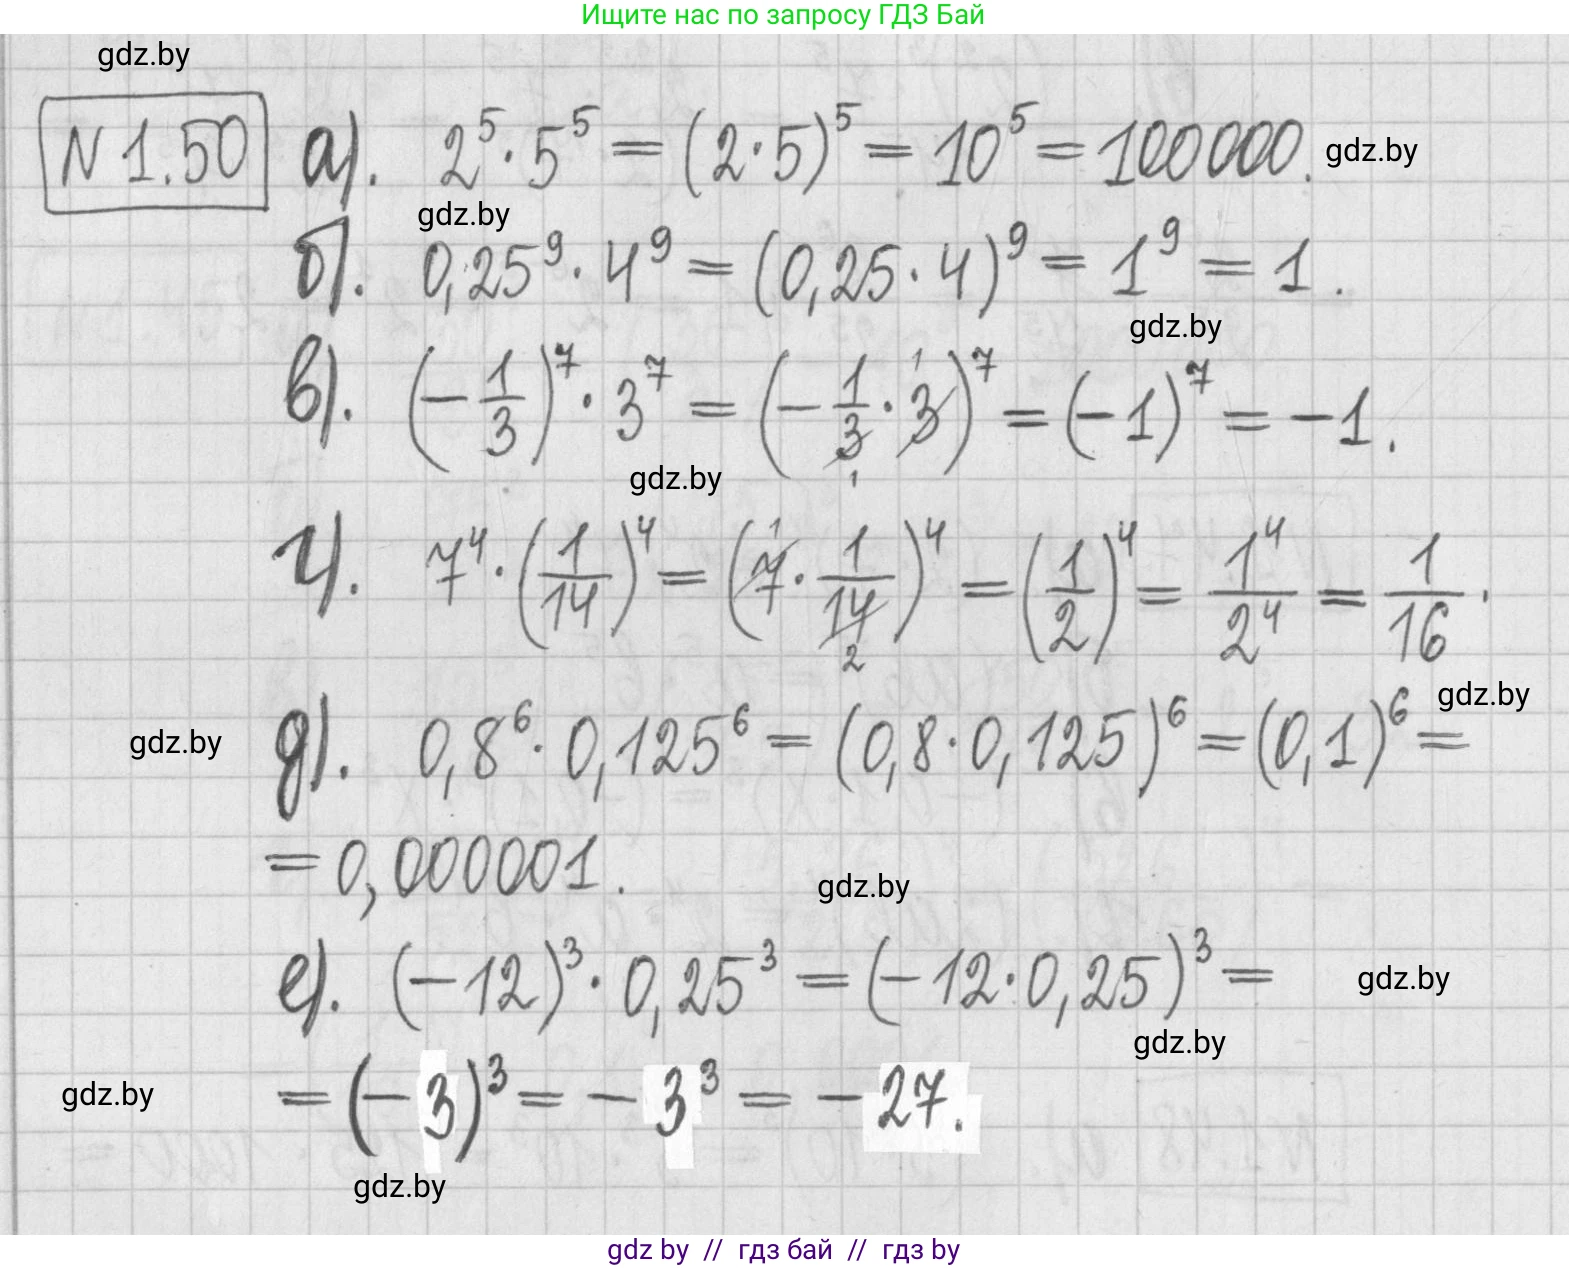 Ищите нас по запросу ГДЗ Бай
gdz.by
N 1.50 а). 2⁵ · 5⁵ = (2 · 5)⁵ = 10⁵ = 100000. gdz.by
gdz.by
б). 0,25⁹ · 4⁹ = (0,25 · 4)⁹ = 1⁹ = 1.
gdz.by
в). (-1/3)⁷ · 3⁷ = (-1/3 · 3)⁷ = (-1)⁷ = -1.
gdz.by
г). 7⁴ · (1/14)⁴ = (7 · 1/14)⁴ = (1/2)⁴ = 1⁴/2⁴ = 1/16.
gdz.by
gdz.by д). 0,8⁶ · 0,125⁶ = (0,8 · 0,125)⁶ = (0,1)⁶ =
= 0,000001.
gdz.by
е). (-12)³ · 0,25³ = (-12 · 0,25)³ = gdz.by
gdz.by
gdz.by = (-3)³ = -3³ = -27.
gdz.by
gdz by // гдз бай // гдз by